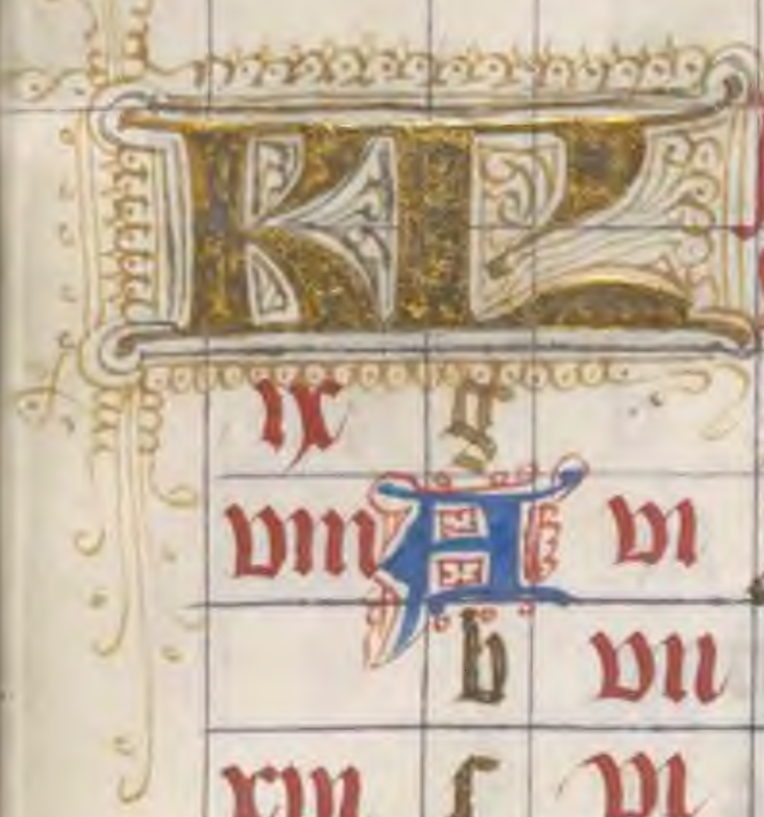 KL
ix g
viii A vi
b vii
xiii c vi